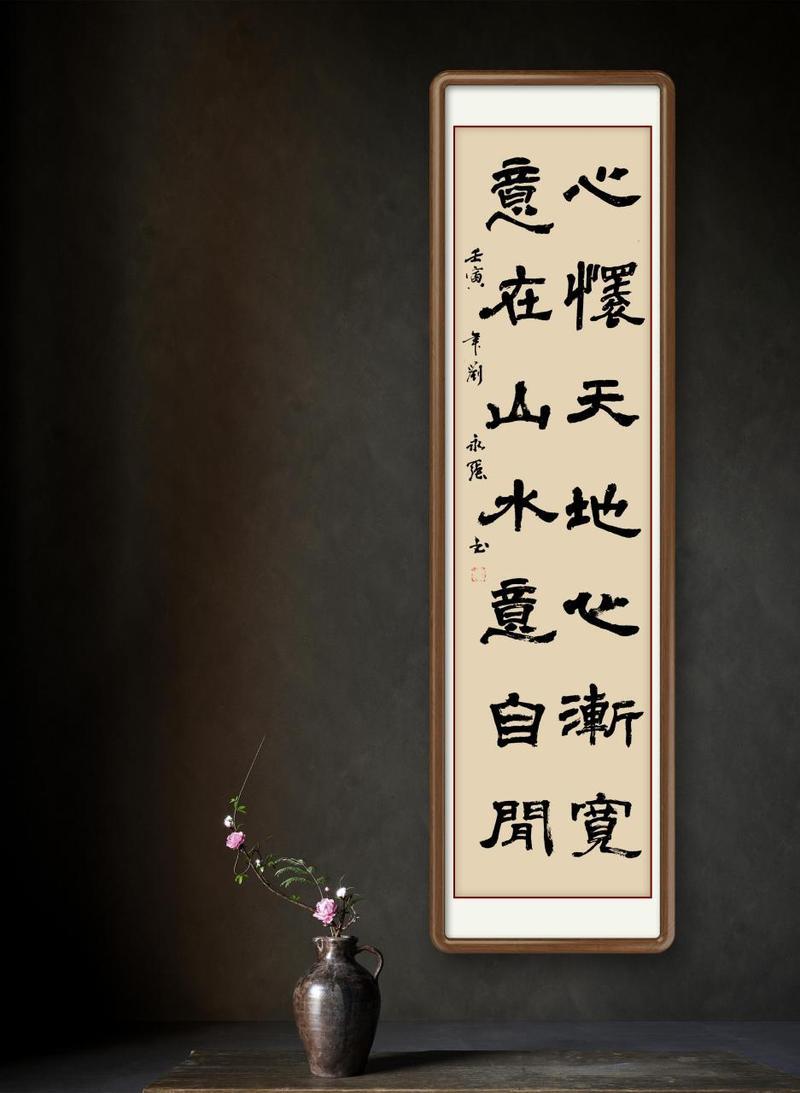 心懷天地心漸寬
意在山水意自閒
壬寅年劉永強书